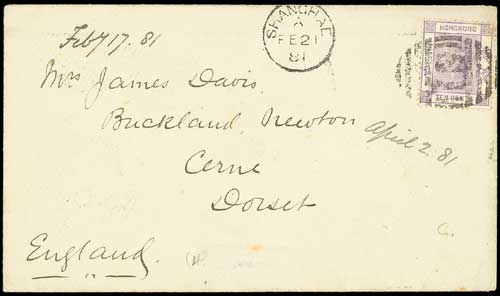 Feby 17. 81
SHANGHAE
A
FE 21
81
HONGKONG
Mrs James Davis.
Buckland, Newton
April 2. 81
Cerne
Dorset
England.